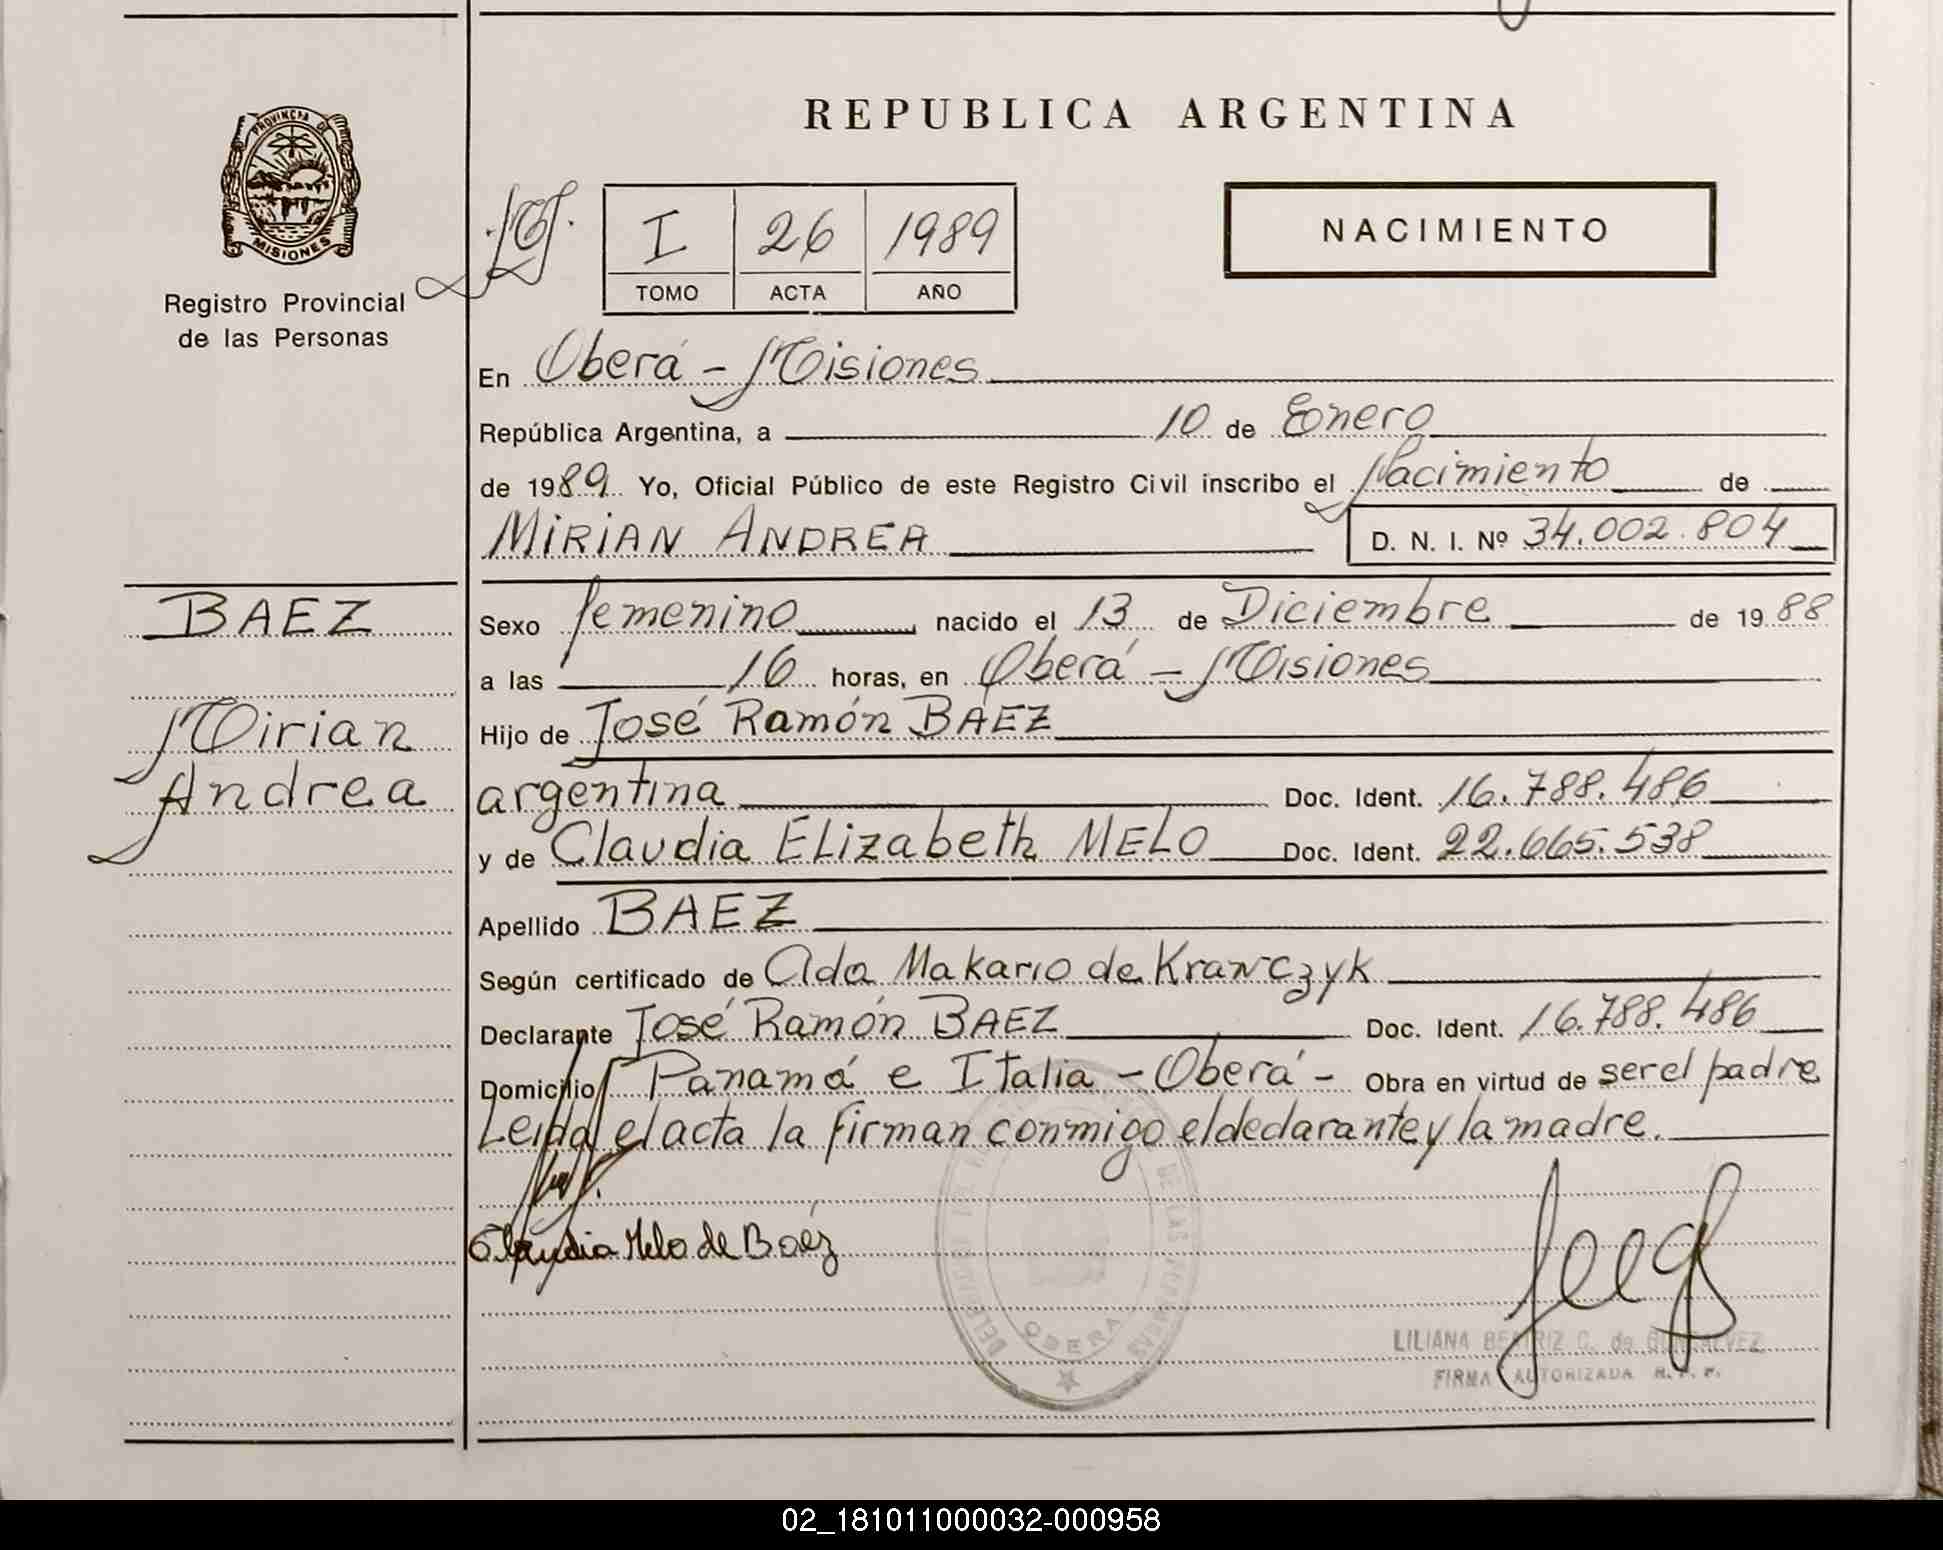 REPUBLICA ARGENTINA
PROVINCIA DE
MISIONES
Registro Provincial
de las Personas
I 26 1989
TOMO ACTA AÑO
NACIMIENTO
En Oberá - Misiones
República Argentina, a 10 de Enero
de 1989 Yo, Oficial Público de este Registro Civil inscribo el Nacimiento de
MIRIAN ANDREA D. N. I. Nº 34.002.804
BAEZ
Mirian
Andrea
Sexo femenino nacido el 13 de Diciembre de 1988
a las 16 horas, en Oberá - Misiones
Hijo de José Ramón BAEZ
argentina Doc. Ident. 16.788.486
y de Claudia Elizabeth MELO Doc. Ident. 22.665.538
Apellido BAEZ
Según certificado de Ada Makario de Krawczyk
Declarante José Ramón BAEZ Doc. Ident. 16.788.486
Domicilio Panamá e Italia - Oberá - Obra en virtud de ser el padre
Leida el acta la firman conmigo el declarante y la madre.
Claudia Melo de Baéz
OBERA
LILIANA BEATRIZ G. de GONCALVEZ
FIRMA AUTORIZADA R. P. P.
02_181011000032-000958